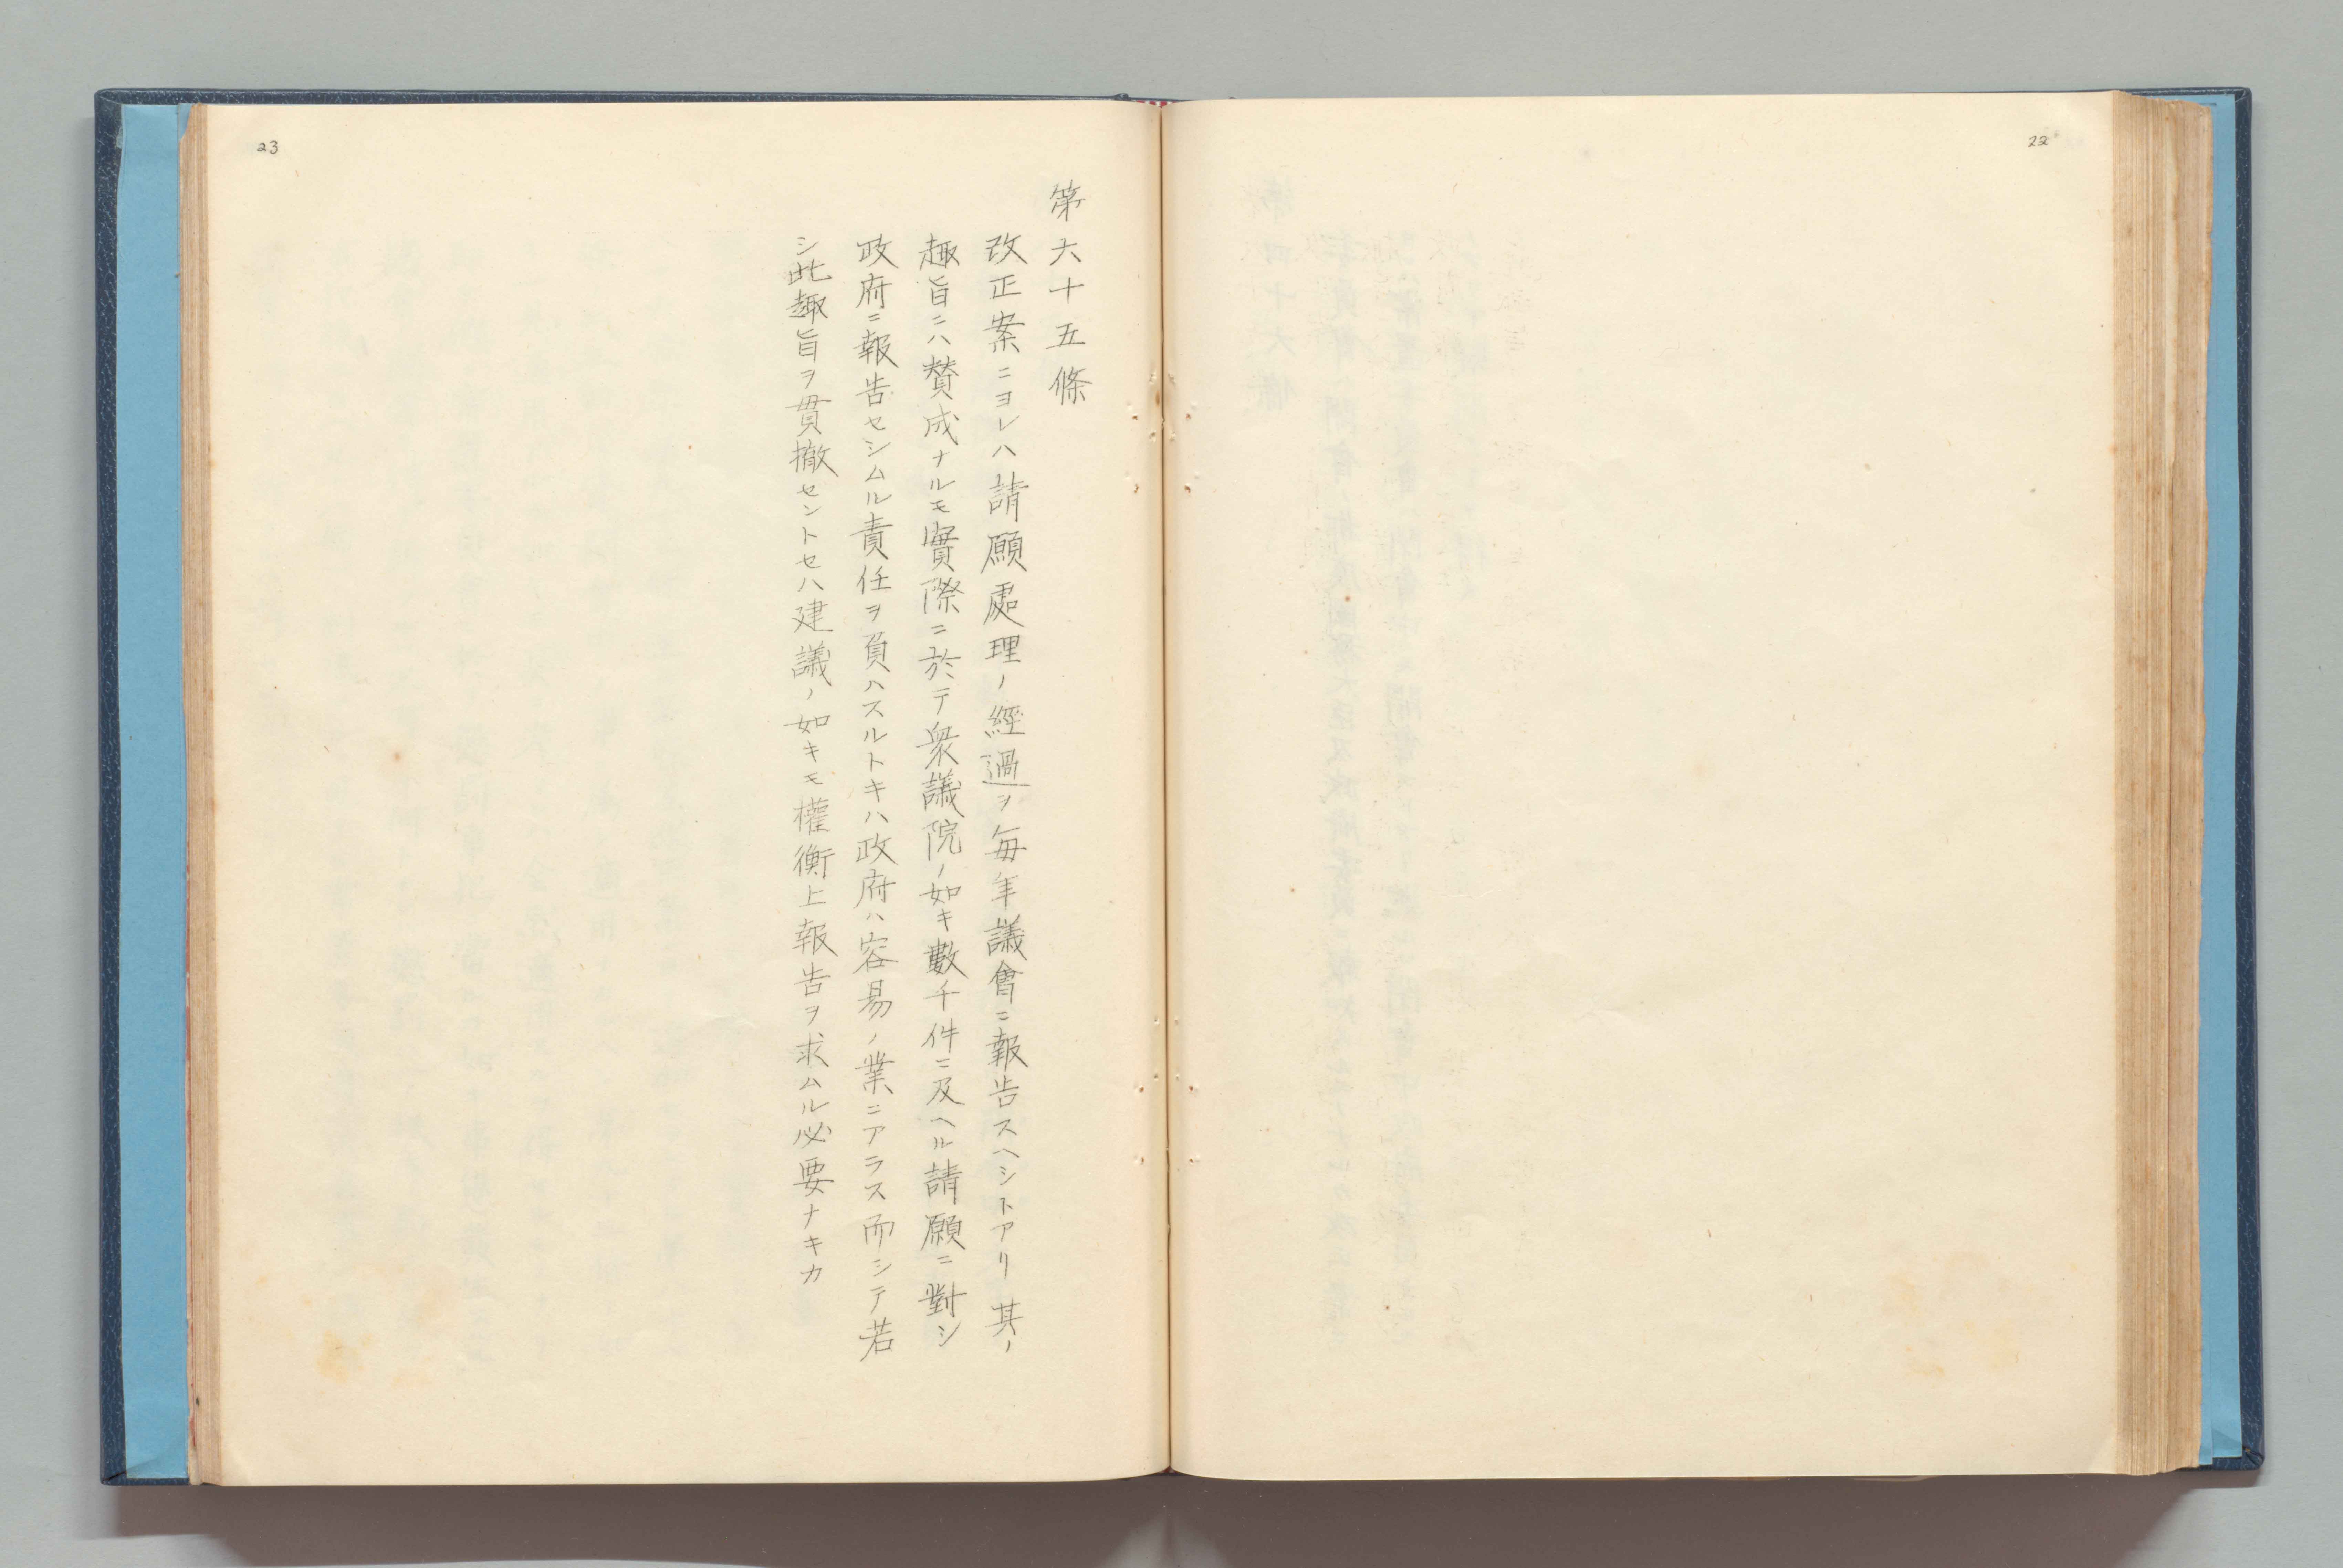 22
23
第六十五條
改正案ニヨレハ請願處理ノ經過ヲ毎年議會ニ報告スヘシトアリ其ノ
趣旨ニハ賛成ナルモ實際ニ於テ衆議院ノ如キ數千件ニ及ヘル請願ニ對シ
政府ニ報告セシムル責任ヲ負ハスルトキハ政府ハ容易ノ業ニアラス而シテ若
シ此趣旨ヲ貫徹セントセハ建議ノ如キモ權衡上報告ヲ求ムル必要ナキカ